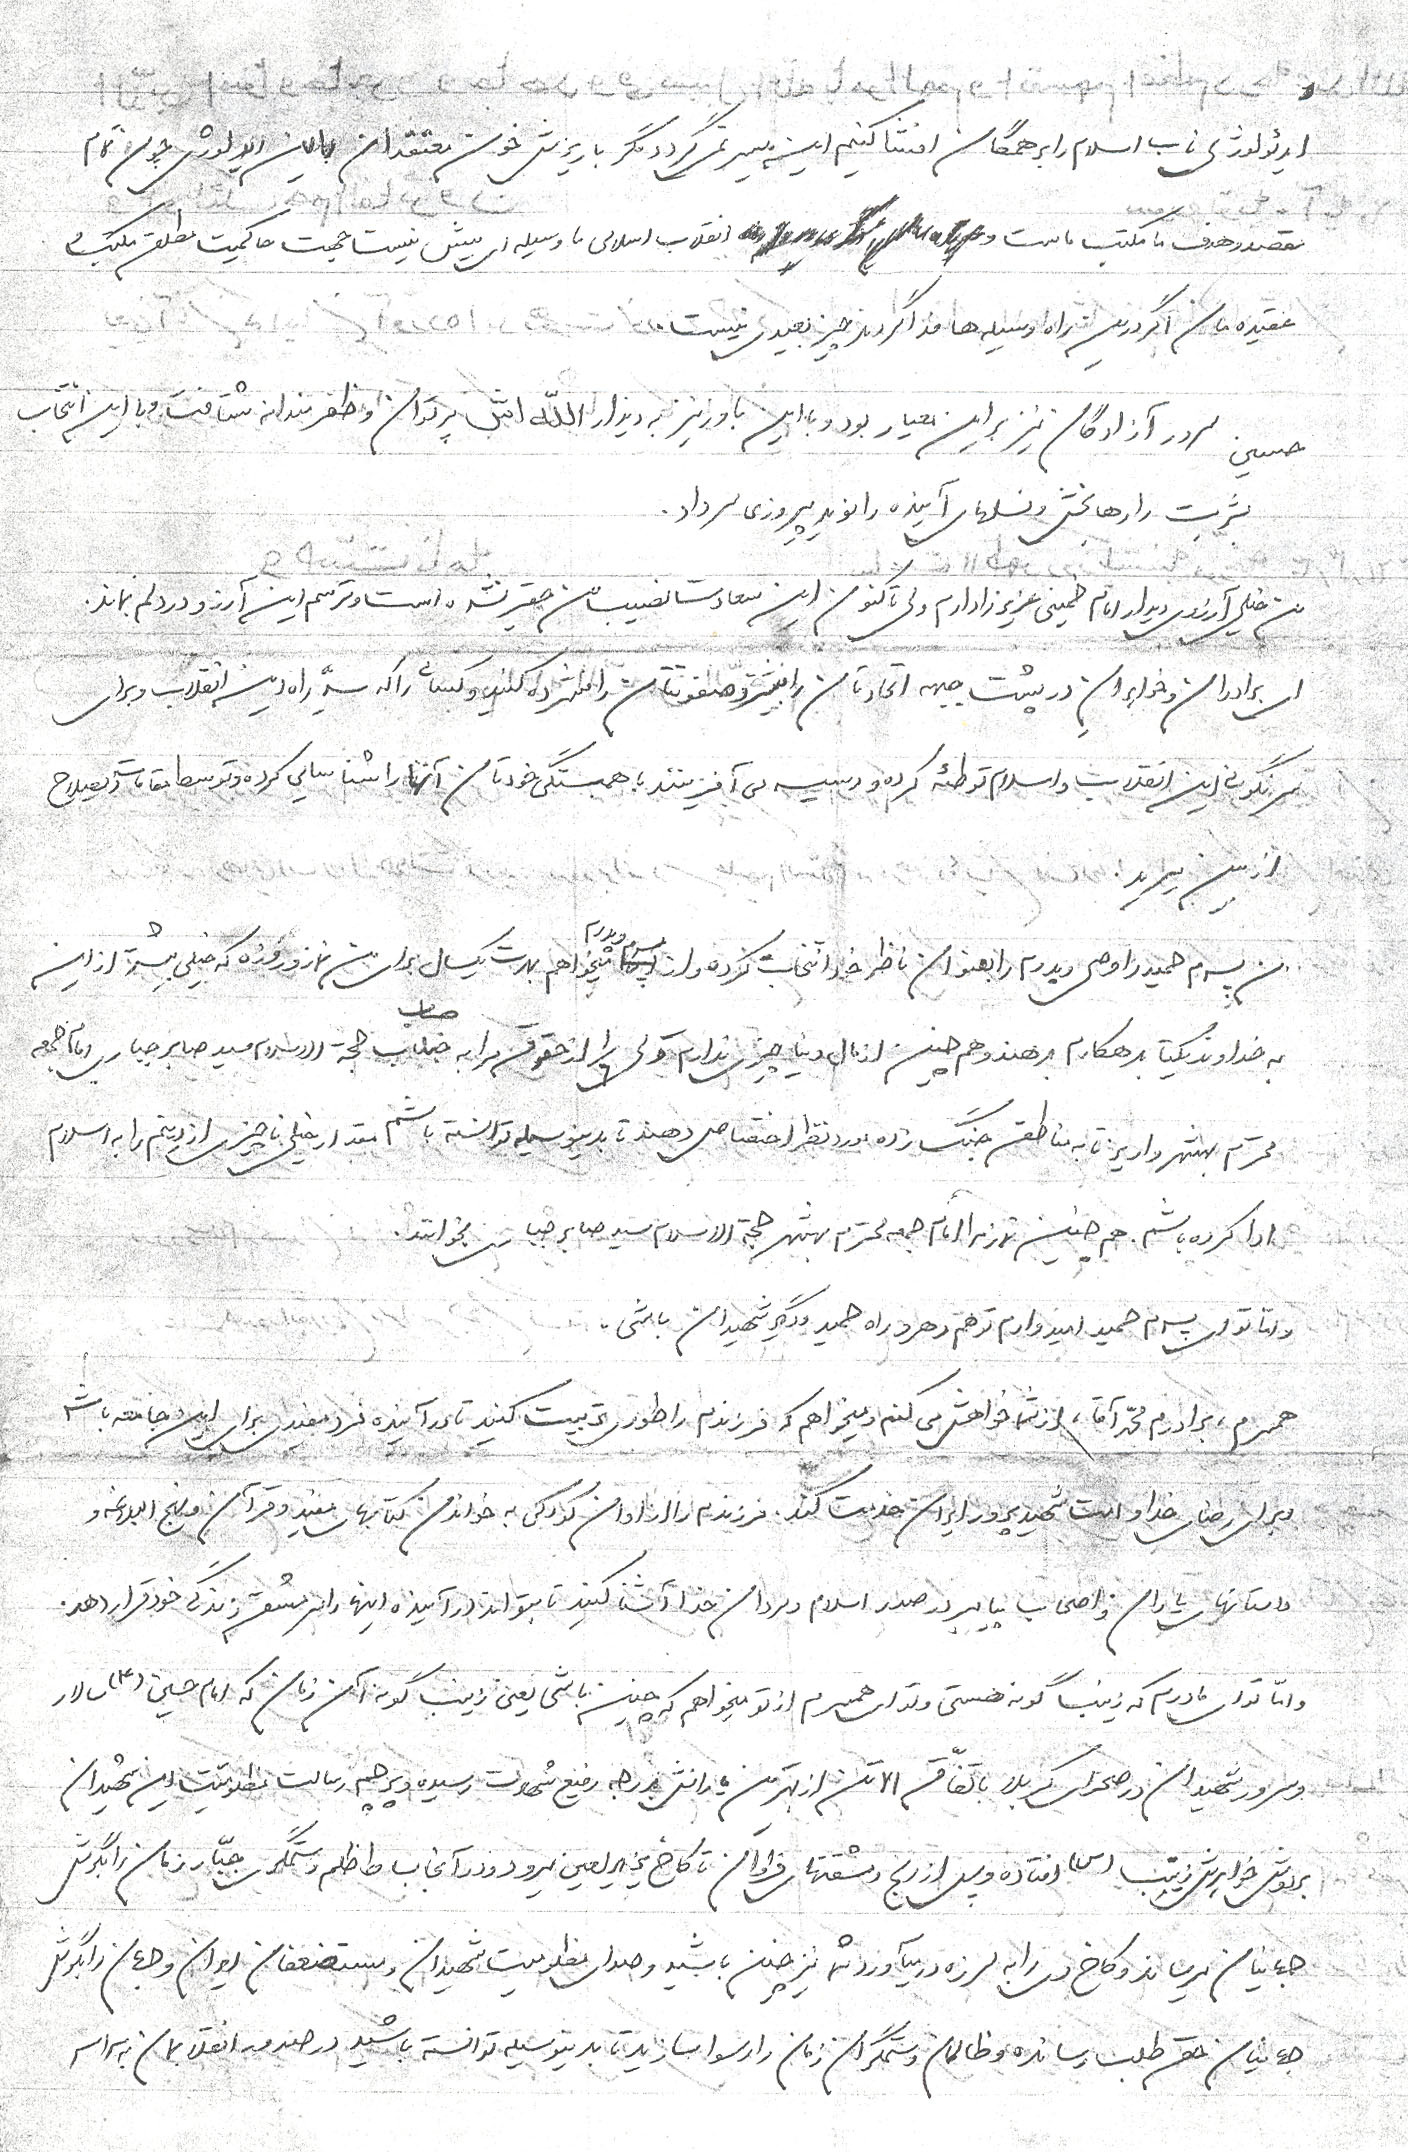 ایدئولوژی ناب اسلام را بر همگان افشا کنیم این میسر نمی‌گردد مگر با ریزش خون معتقدان باین ایدئولوژی چون تمام
مقصد و هدف ما مکتب ماست و انقلاب اسلامی ما وسیله ای بیش نیست جهت حاکمیت مطلق مکتب و
عقیده مان اگر در این راه وسیله ها فدا گردند چیز بعیدی نیست.
حسین سرور آزادگان نیز بر این معیار بود و با این باور نیز به دیدار الله اش پرتوان و ظفرمندانه شتافت و با این انتخاب
بشریت را رهابخش و نسلهای آینده را نوید پیروزی سر داد.
من خیلی آرزوی دیدار امام خمینی عزیز را دارم ولی تاکنون این سعادت نصیب من حقیر نشده است و ترسم این آرزو در دلم بماند.
ای برادران و خواهران در پشت جبهه اتحادتان را بیشتر و صفوفتان را فشرده کنید و کسانی را که سد راه این انقلاب و برای
سرنگونی این انقلاب و اسلام توطئه کرده و دسیسه می آفرینند با همبستگی خودتان آنها را شناسایی کرده و توسط مقامات ذیصلاح
از بین ببرید.
من پسرم حمید را وصی و پدرم را بعنوان ناظر خود انتخاب کرده و از پسرم و پدرم میخواهم بمدت یکسال برای من نماز و روزه که خیلی بیشتر از این
به خداوند یکتا بدهکارم بدهند و هم چنین از مال دنیا چیزی ندارم ولی را از حقوق مرا به جناب حجة الاسلام سید صابر جباری امام جمعه
محترم بهشهر واریز تا به مناطق جنگ زده مورد نظر اختصاص دهند تا بدینوسیله توانسته باشم مقدار خیلی ناچیزی از دینم را به اسلام
ادا کرده باشم. هم چنین نمازم را امام جمعه محترم بهشهر حجة الاسلام سید صابر جباری بخوانند.
و اما تو ای پسرم حمید امیدوارم تو هم رهرو راه حمید و دیگر شهیدان باشی.
همسرم، برادرم محمد آقا، از شما خواهش می کنم و میخواهم که فرزندم را طوری تربیت کنید تا در آینده فرد مفیدی برای این جامعه باشد
و برای رضای خدا و امت شهید پرور ایران خدمت کند. فرزندم را از اوان کودکی به خواندن کتابهای مفید و قرآن و نهج البلاغه و
داستانهای یاران و اصحاب پیامبر در صدر اسلام و مردان خدا آشنا کنید تا بتواند در آینده اینها را سرمشق زندگی خود قرار دهد.
و اما تو ای مادرم که زینب گونه هستی و تو ای همسرم از تو میخواهم که چنین باشی یعنی زینب گونه آن زمان که امام حسین (ع) سالار
و سرور شهیدان در صحرای کربلا باتفاق تن از بهترین یارانش بدرجه رفیع شهادت رسیده و پرچم رسالت مظلومیت این شهیدان
بر دوش خواهرش زینب (س) افتاده و پس از رنج و مشقتهای فراوان تا کاخ یزید لعین میرود و در آنجا ظلم و ستمگری جبار زمان را بگوش
جهانیان میرساند و کاخ وی را به لرزه در میآورد شما نیز چنین باشید و صدای مظلومیت شهیدان و مستضعفان ایران و جهان را بگوش
جهانیان حق طلب رسانده و ظالمان و ستمگران زمان را رسوا سازید تا بدینوسیله توانسته باشید در صدور انقلابمان به سراسر